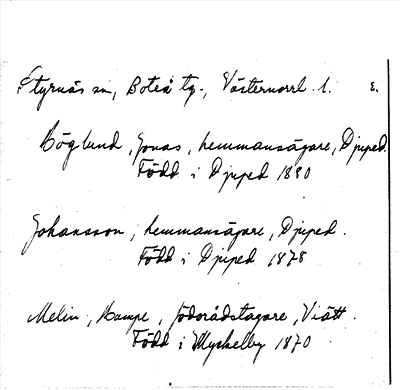 Styrnäs sn, Boteå tg., Västernorrl. l. E.
Höglund, Jonas, hemmansägare, Djuped.
Född i Djuped 1880
Johansson, hemmansägare, Djuped.
Född i Djuped 1878
Melin, Hampe, födorådstagare, Viätt.
Född i Myckelby 1870